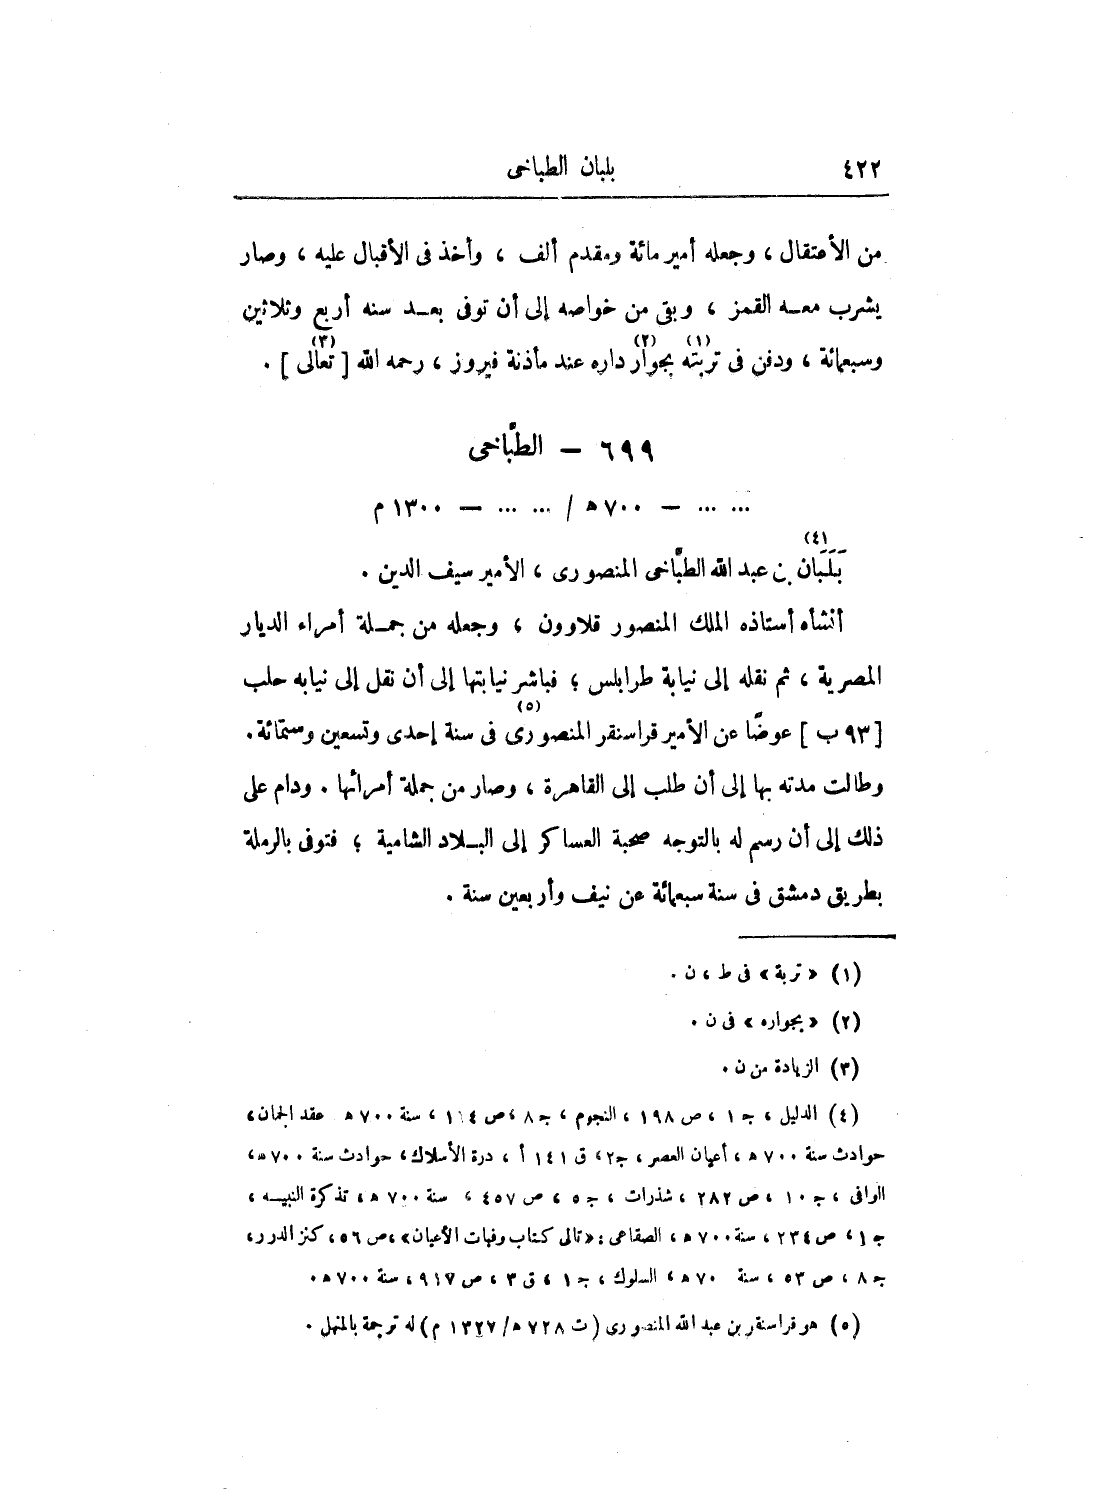 ٤٢٢ بلبان الطباخى
من الأعتقال ، وجعله أمير مائة ومقدم ألف ، وأخذ فى الأقبال عليه ، وصار
يشرب معه القمز ، وبقى من خواصه إلى أن توفى بعد سنه أربع وثلاثين
وسبعمائة ، ودفن فى تربته (١) بجوار (٢) داره عند مأذنة فيروز ، رحمه الله [ تعالى (٣) ] .
٦٩٩ – الطبَّاخى
... ... – ٧٠٠ ه / ... ... – ١٣٠٠ م
بَلَبَان (٤) بن عبد الله الطبَّاخى المنصورى ، الأمير سيف الدين .
أنشأه أستاذه الملك المنصور قلاوون ، وجعله من جملة أمراء الديار
المصرية ، ثم نقله إلى نيابة طرابلس ؛ فباشر نيابتها إلى أن نقل إلى نيابه حلب
[ ٩٣ ب ] عوضًا عن الأمير قراسنقر المنصورى (٥) فى سنة إحدى وتسعين وستمائة .
وطالت مدته بها إلى أن طلب إلى القاهرة ، وصار من جملة أمرائها . ودام على
ذلك إلى أن رسم له بالتوجه صحبة العساكر إلى البلاد الشامية ؛ فتوفى بالرملة
بطريق دمشق فى سنة سبعمائة عن نيف وأربعين سنة .
(١) « تربة » فى ط ، ن .
(٢) « بجواره » فى ن .
(٣) الزيادة من ن .
(٤) الدليل ، ج ١ ، ص ١٩٨ ، النجوم ، ج ٨ ، ص ١١٤ ، سنة ٧٠٠ ه عقد الجمان ،
حوادث سنة ٧٠٠ ه ، أعيان العصر ، ج٢ ، ق ١٤١ أ ، درة الأسلاك ، حوادث سنة ٧٠٠ ه ،
الوافى ، ج ١٠ ، ص ٢٨٢ ، شذرات ، ج ٥ ، ص ٤٥٧ ، سنة ٧٠٠ ه ، تذكرة النبيه ،
ج ١ ، ص ٢٣٤ ، سنة ٧٠٠ ه ، الصقاعى : « تالى كتاب وفيات الأعيان » ، ص ٥٦ ، كنز الدرر ،
ج ٨ ، ص ٥٣ ، سنة ٧٠ ه ، السلوك ، ج ١ ، ق ٣ ، ص ٩١٧ ، سنة ٧٠٠ ه .
(٥) هو قراسنقر بن عبد الله المنصورى ( ت ٧٢٨ ه / ١٣٢٧ م ) له ترجمة بالمنهل .